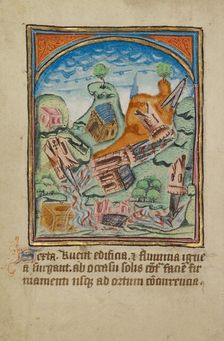 Sexta. Ruent edificia. et fluuuia ignea
a surgant. ab occasu solis cont faciem fir
mamenti usque ad ortum conuertencia.